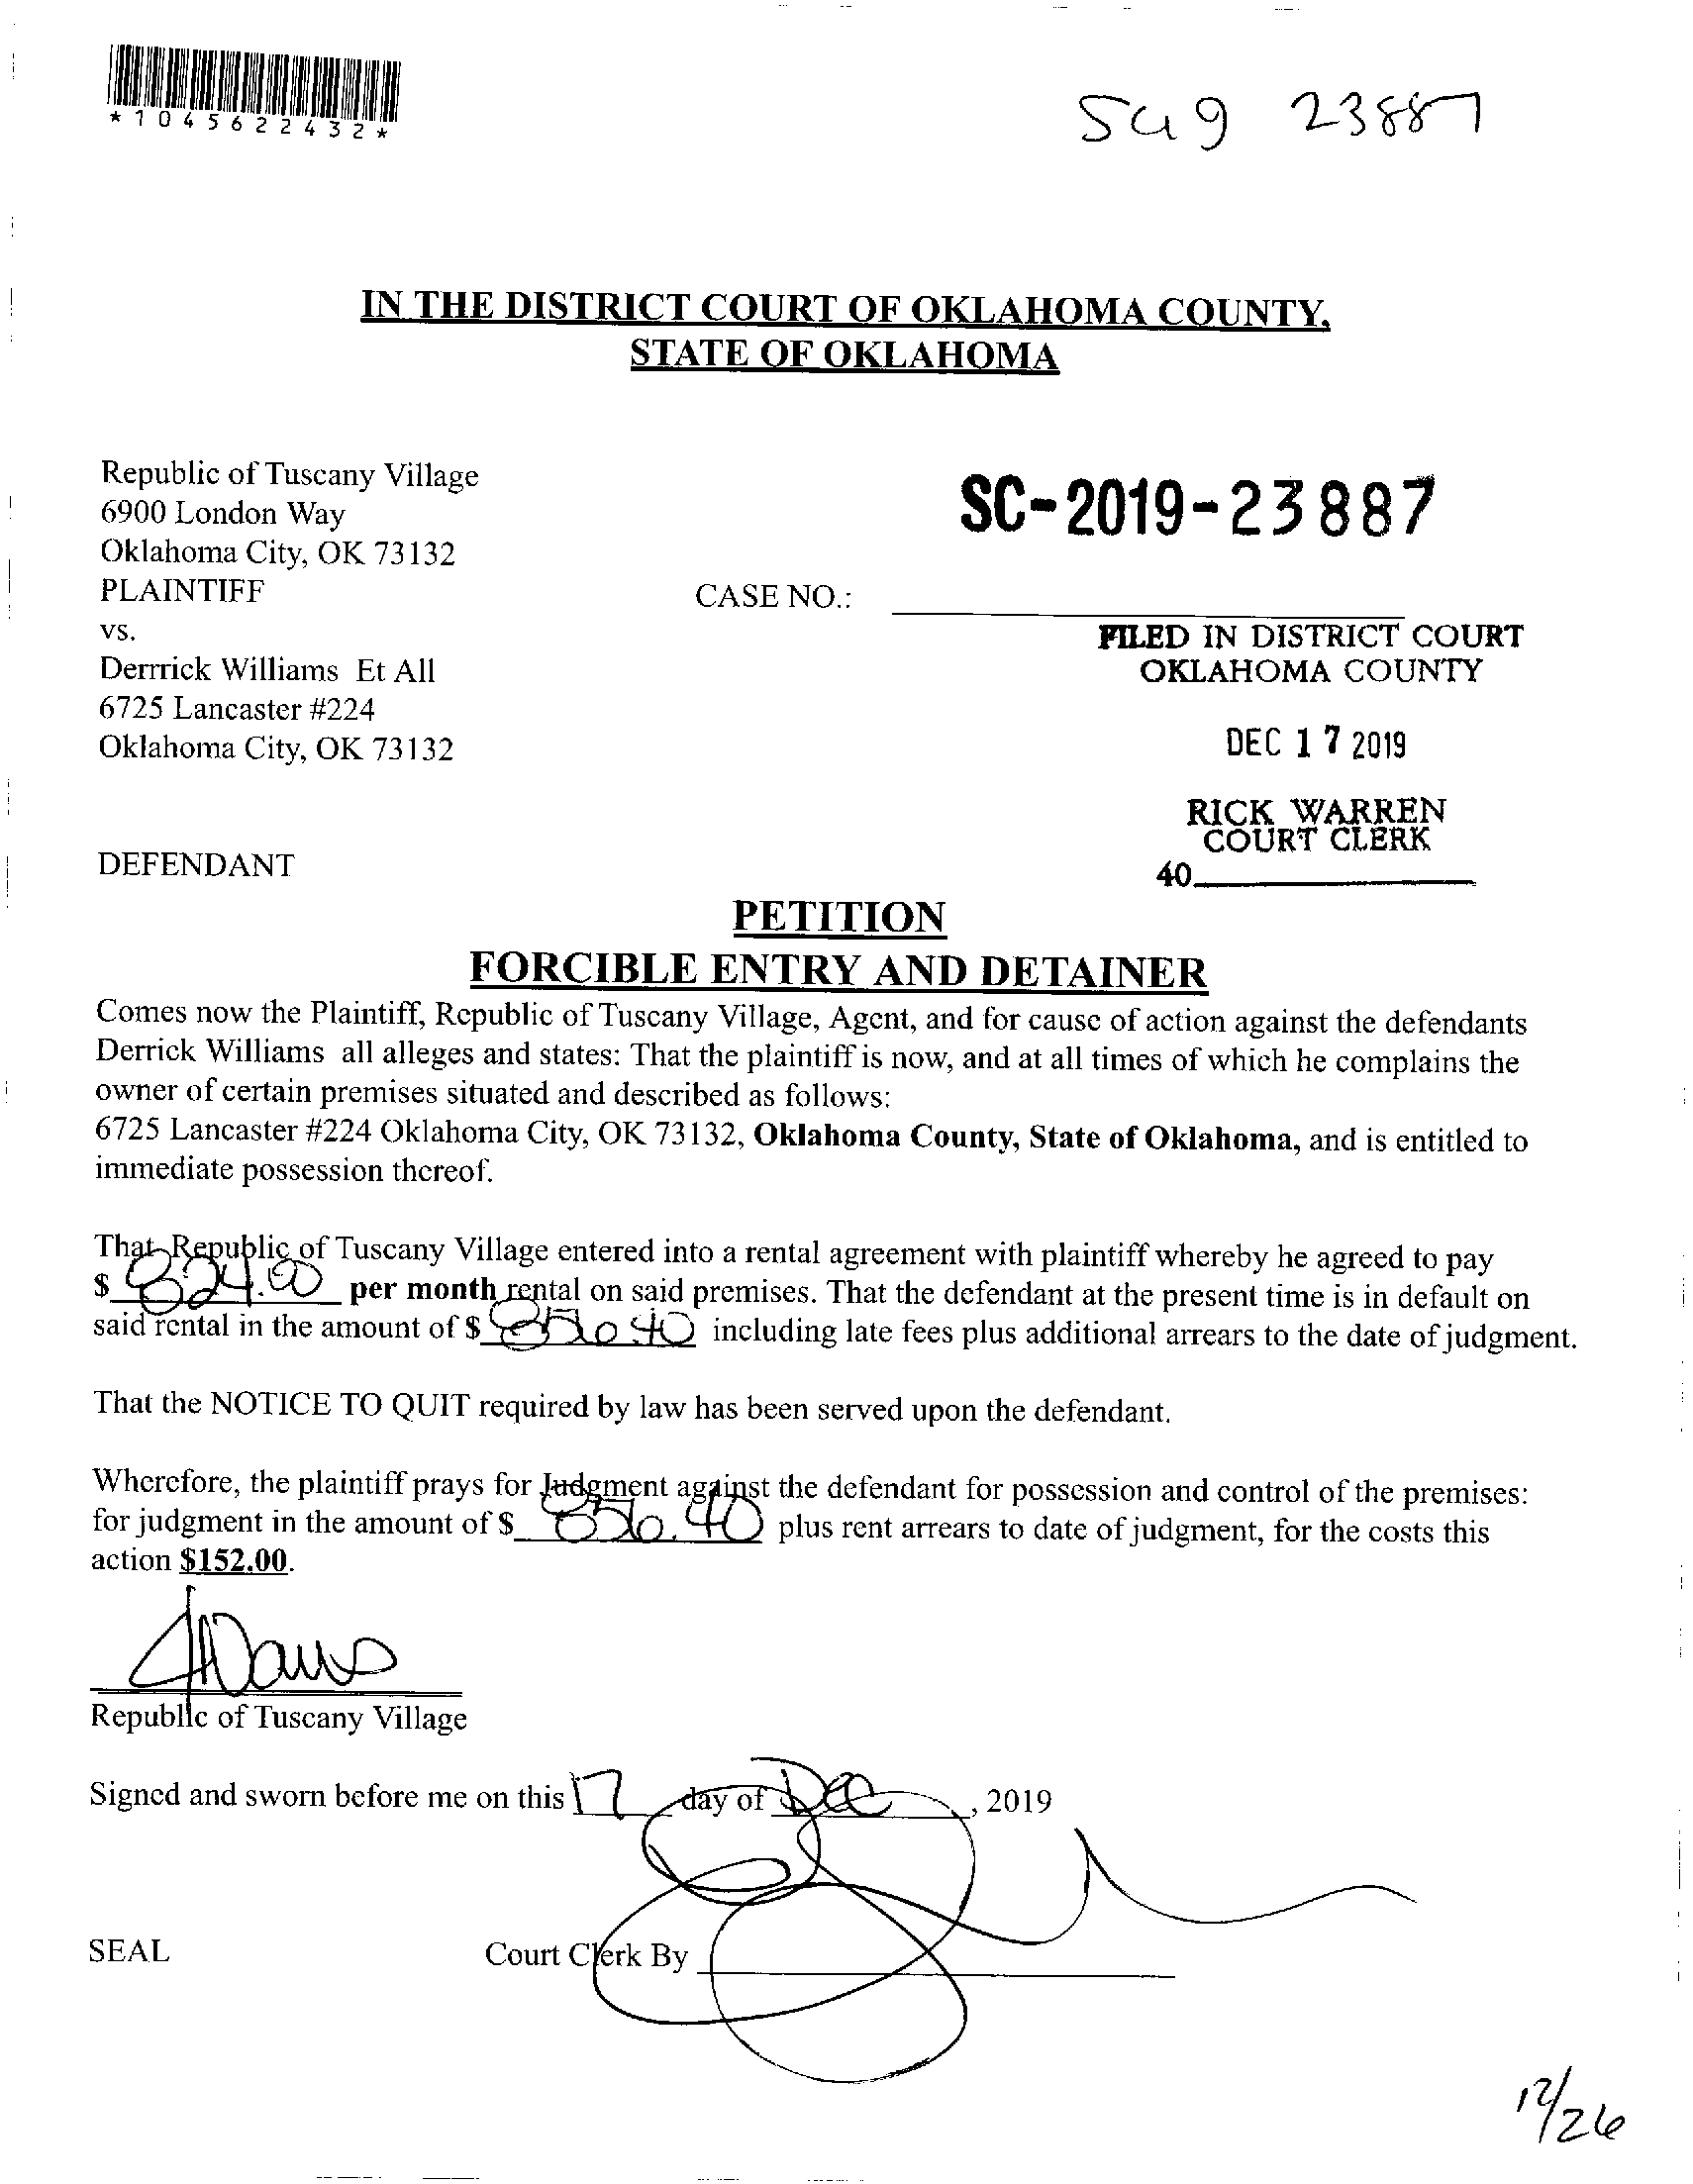 *1045622432*
SC19 23887
IN THE DISTRICT COURT OF OKLAHOMA COUNTY,
STATE OF OKLAHOMA
Republic of Tuscany Village
6900 London Way
Oklahoma City, OK 73132
PLAINTIFF
vs.
Derrrick Williams Et All
6725 Lancaster #224
Oklahoma City, OK 73132
DEFENDANT
SC-2019-23887
CASE NO.:
FILED IN DISTRICT COURT
OKLAHOMA COUNTY
DEC 17 2019
RICK WARREN
COURT CLERK
40
PETITION
FORCIBLE ENTRY AND DETAINER
Comes now the Plaintiff, Republic of Tuscany Village, Agent, and for cause of action against the defendants
Derrick Williams all alleges and states: That the plaintiff is now, and at all times of which he complains the
owner of certain premises situated and described as follows:
6725 Lancaster #224 Oklahoma City, OK 73132, Oklahoma County, State of Oklahoma, and is entitled to
immediate possession thereof.
That Republic of Tuscany Village entered into a rental agreement with plaintiff whereby he agreed to pay
$ 824.00 per month rental on said premises. That the defendant at the present time is in default on
said rental in the amount of $ 856.40 including late fees plus additional arrears to the date of judgment.
That the NOTICE TO QUIT required by law has been served upon the defendant.
Wherefore, the plaintiff prays for Judgment against the defendant for possession and control of the premises:
for judgment in the amount of $ 856.40 plus rent arrears to date of judgment, for the costs this
action $152.00.
Republic of Tuscany Village
Signed and sworn before me on this 17 day of Dec, 2019
SEAL
Court Clerk By
12/26